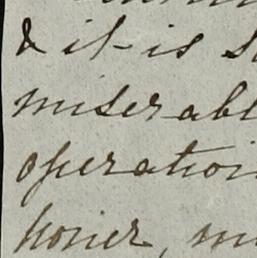 & it is
miserabl
operation
honer, m